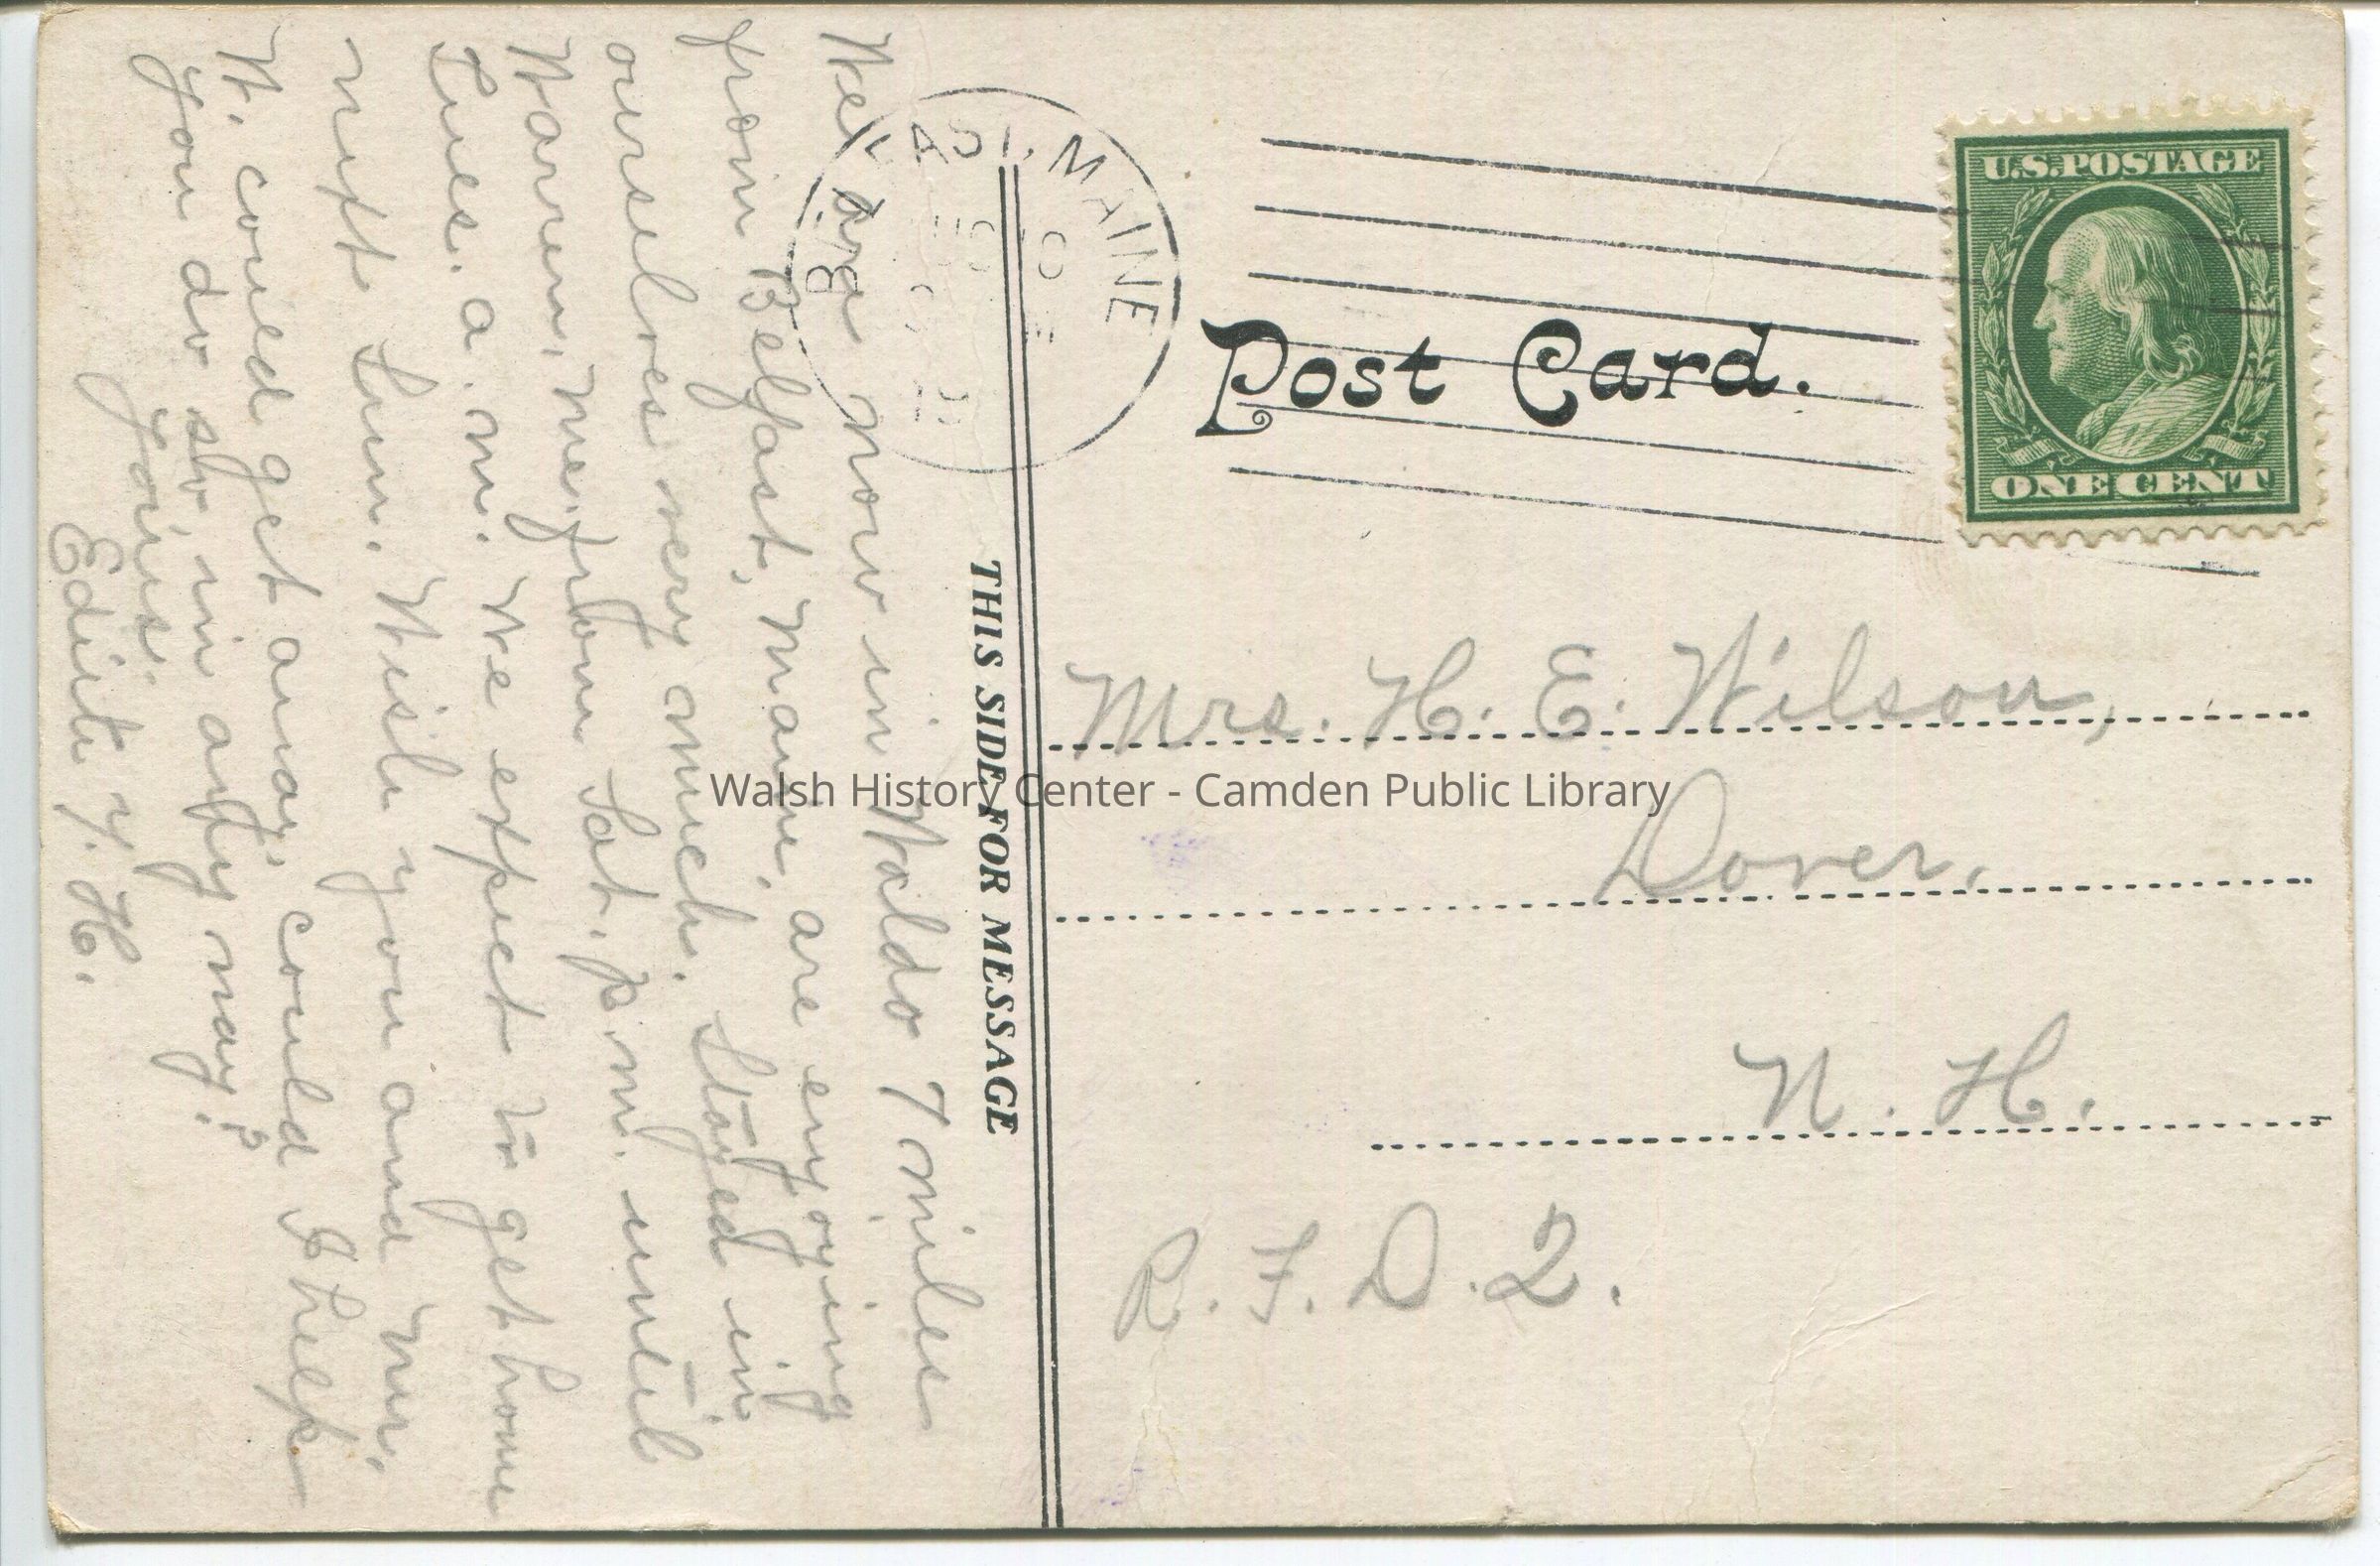 U.S. POSTAGE
ONE CENT
MAINE
Post Card.
THIS SIDE FOR MESSAGE
Mrs. H. E. Wilson,
Dover,
N. H.
R. F. D. 2.
We are now in Waldo 7 miles
from Belfast, Maine, are enjoying
ourselves very much. Stayed in
Warren, Me. from Sat. p.m. until
Tues. a. m. We expect to get home
next Sun. Wish you and Mr.
W. could get away, could I help
you do so, in any way?
Yours.
Edith Y. H.
Walsh History Center - Camden Public Library